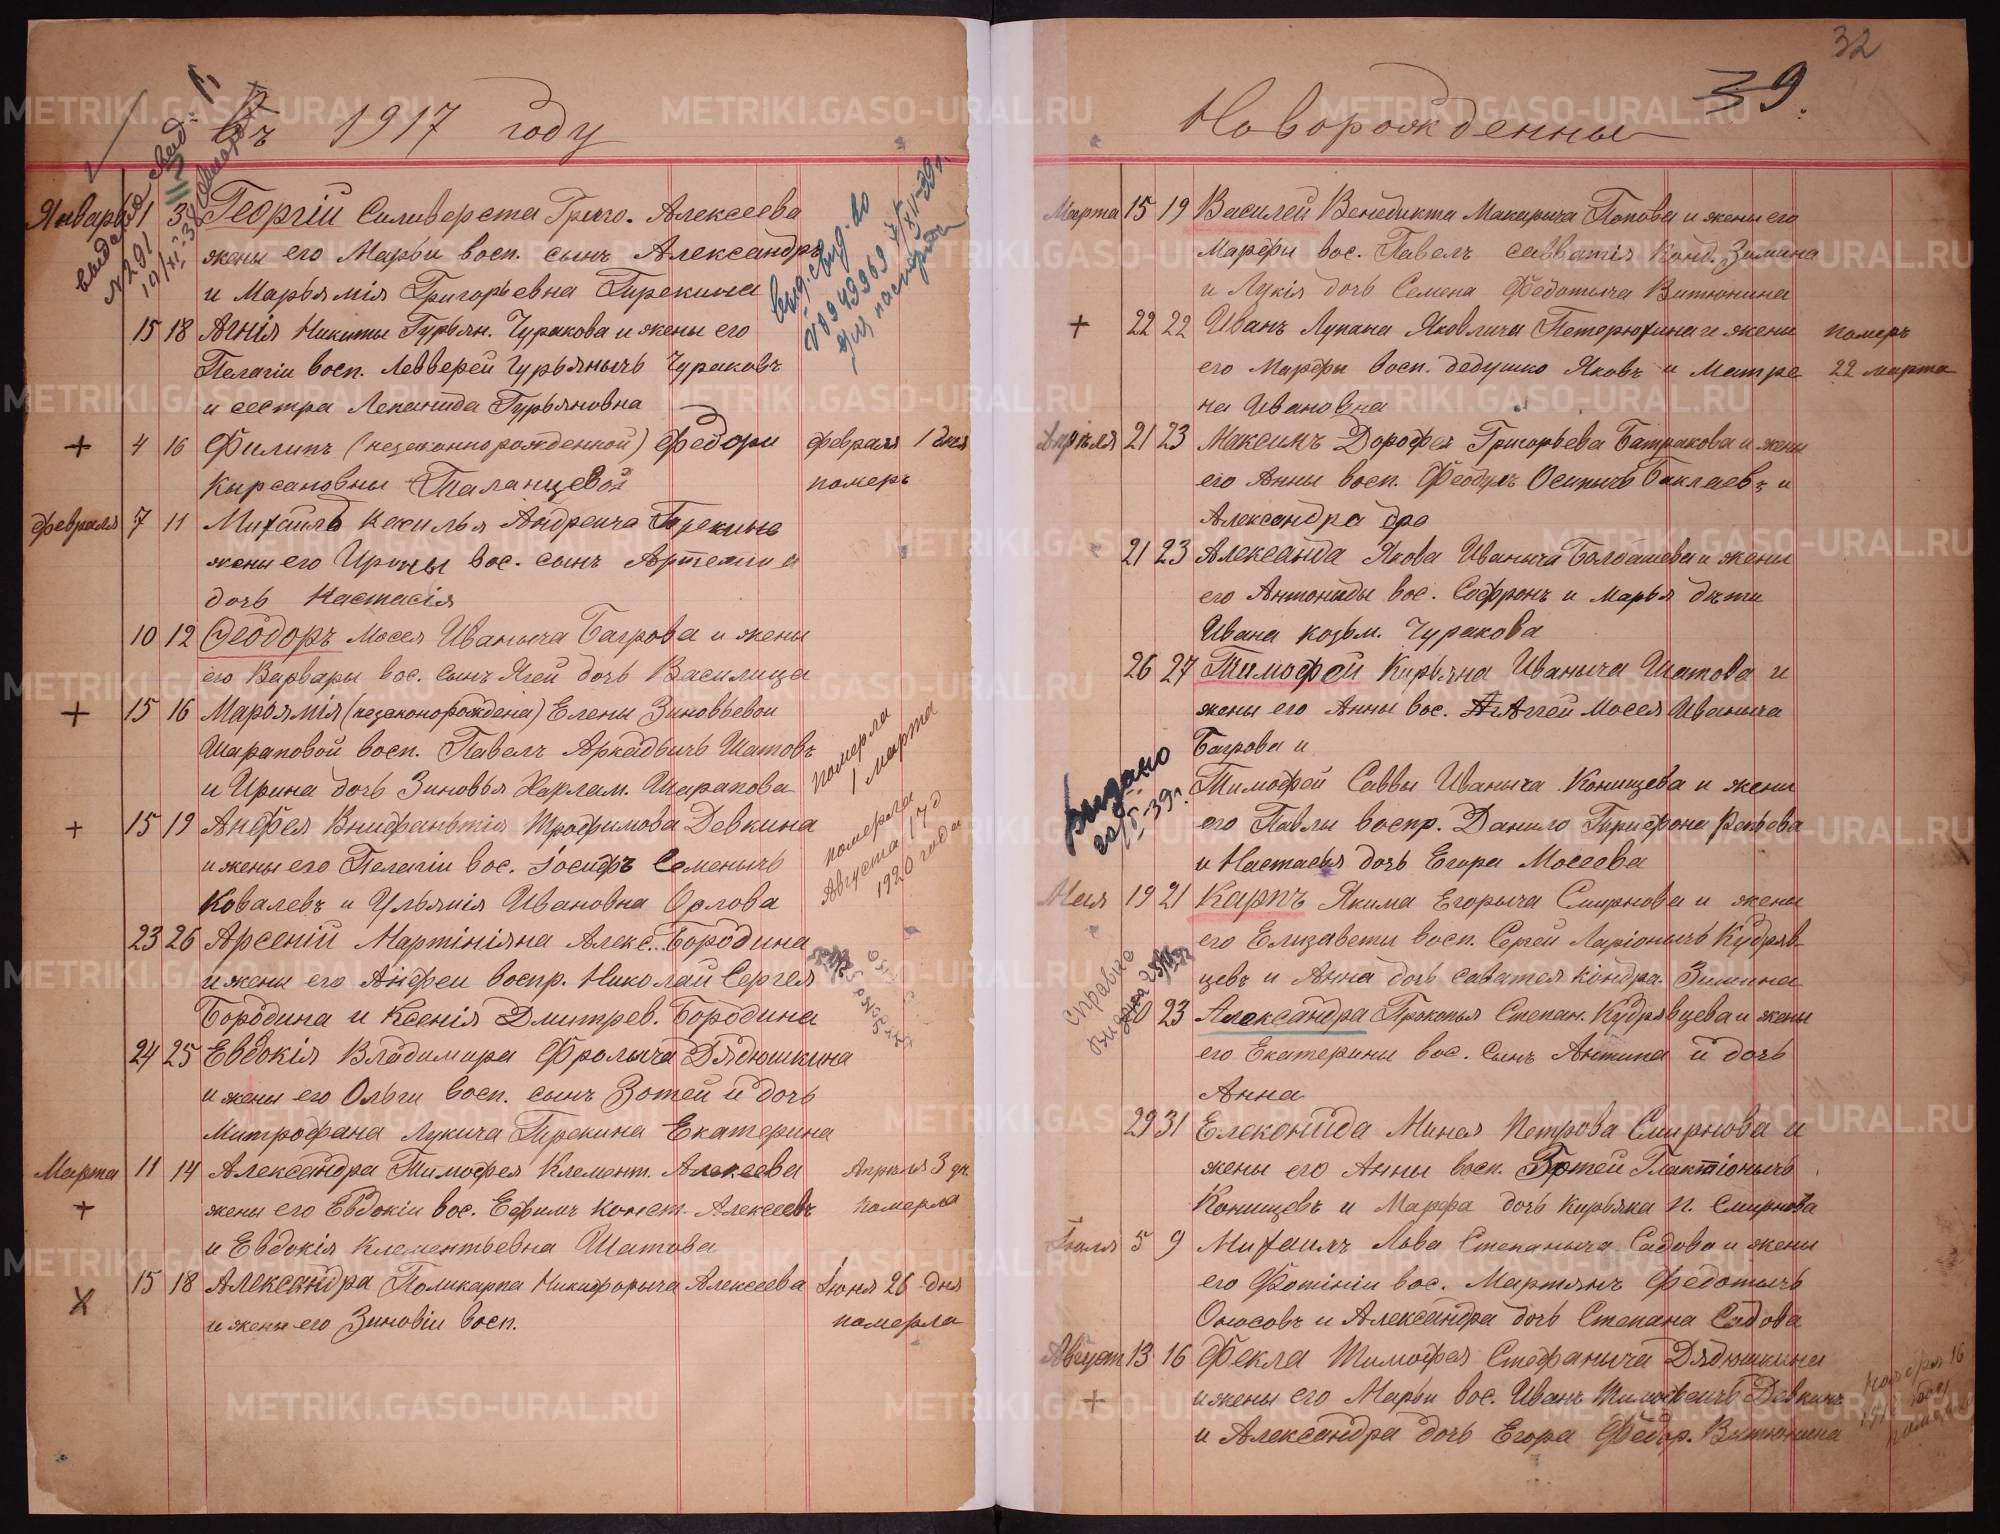 въ 1917 году
Январь 1 3 Георгій Силиверста Григо. Алексеева
жены его Марьи восп. сынъ Александра
и Марьямія Григорьевна Трекина
15 18 Агнія Никиты Гурьян. Чуракова и жены его
Пелагіи восп. Левверей Гурьянычь Чураковъ
и сестра Леканида Гурьяновна
+ 4 16 Филипъ (незаконнорожденной) Федоры февраля 1 дня
Кырсановны Таланцевой померъ
февраля 7 11 Михаилъ Андреича Трекина
жены его Ирины вос. сынъ Артемия
дочь Настасія
10 12 Феодоръ Мосея Иваныча Багрова и жены
его Варвары вос. сынъ Ягей дочь Василица
+ 15 16 Марьямія (незаконорождена) Елены Зиновьевой
Шараповой восп. Павелъ Аркадьичь Шатовъ
и Ирина дочь Зиновья Харлам. Шарапова
померла
1 марта
+ 15 19 Анфея Трофимова Девкина
и жены его Пелагіи вос. Іосифъ Семенычь
Ковалевъ и Ульянія Ивановна Орлова
померла
Августа 17 д
1920 года
23 26 Арсеній Мартініяна Алекс. Бородина
и жены его Анфеи воспр. Николай Сергея
Бородина и Ксенія Дмитрев. Бородина
24 25 Евдокія Владимира Фролыча Дядюшкина
и жены его Ольги восп. сынъ Зотей и дочь
Митрофана Лукича Трекина Екатерина
Марта 11 14 Александра Тимофея Климент. Алексеева Апреля 3 дн.
+ жены его Евдокіи вос. Ефимъ Конст. Алексеевъ померла
и Евдокія Клементьевна Шатова
15 18 Александра Поликарпа Никифорыча Алексеева Іюня 26 дня
х и жены его Зиновіи восп. померла
выдано свид.
№291
выд. свид-во
для паспорта
32
39.
Новорожденны
Марта 15 19 Василей Венедикта Макарыча Попова и жены его
Марфы вос. Павелъ савватія Конд. Зимина
и Лукія дочь Семена Федотыча Витюнина
+ 22 22 Иванъ Лупана Яковлича Петерюхина и жены померъ
его Марфы восп. дедушко Яковъ и Матре 22 марта
на Ивановна
Апреля 21 23 Максимъ Дорофея Григорьева Батракова и жены
его Анны восп. Феодулъ Осипычь Баклаевъ и
Александра
21 23 Александа Якова Иваныча Балдашева и жены
его Антониды вос. Софронъ и Марья дети
Ивана Козьм. Чуракова
26 27 Тимофей Кирьяна Иваныча Шатова и
жены его Анны вос. Аггей Мосея Иваныча
Багрова и
Тимофей Саввы Иваныча Конищева и жены
его Павлы воспр. Данило Трифона Репьева
и Настасья дочь Егора Мосеева
выдано
Мая 19 21 Карпъ Якима Егорыча Смирнова и жены
его Елизаветы восп. Сергей Ларіонычь Кудряв-
цевъ и Анна дочь саватея кондра. Зимина
справка
выдана
23 Александра Прокопья Степан. Кудрявцева и жены
его Екатерины вос. сынъ Антипа и дочь
Анна
29 31 Елеконида Миная Петрова Смирнова и
жены его Анны восп. Зотей Глактіонычь
Конищевъ и Марфа дочь Кирьяка П. Смирнова
Іюля 5 9 Михаилъ Льва Степаныча Садова и жены
его Фотініи вос. Мартянъ Федотычь
и Александра дочь Степана Садова
Август 13 16 Фекла Тимофея Стефаныча Дядюшкина
+ и жены его Марьи вос. Иванъ Тимофеичь Девкинъ
и Александра дочь Егора Федор. Витюнина
METRIKI.GASO-URAL.RU